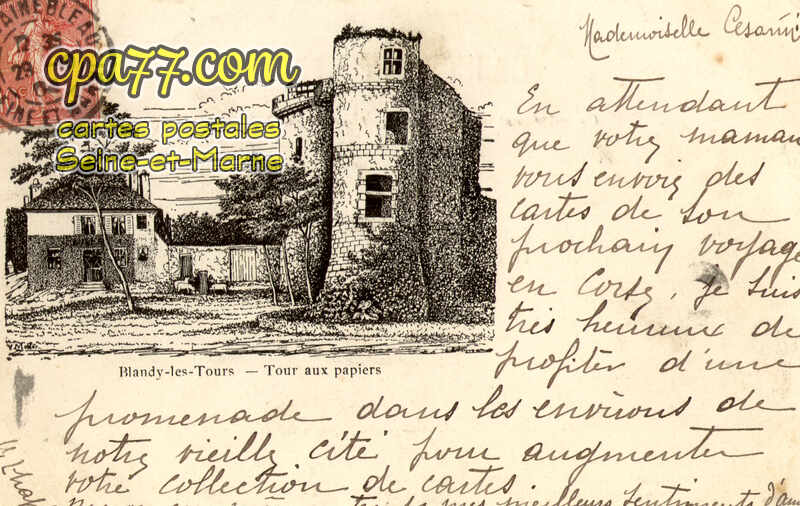 cpa77.com
cartes postales
Seine-et-Marne
Mademoiselle
En attendant
que votre maman
vous envoie des
cartes de son
prochain voyage
en Corse, je suis
très heureux de
profiter d'une
Blandy-les-Tours — Tour aux papiers
promenade dans les environs de
notre vieille cité pour augmenter
votre collection de cartes
mes meilleurs sentiments